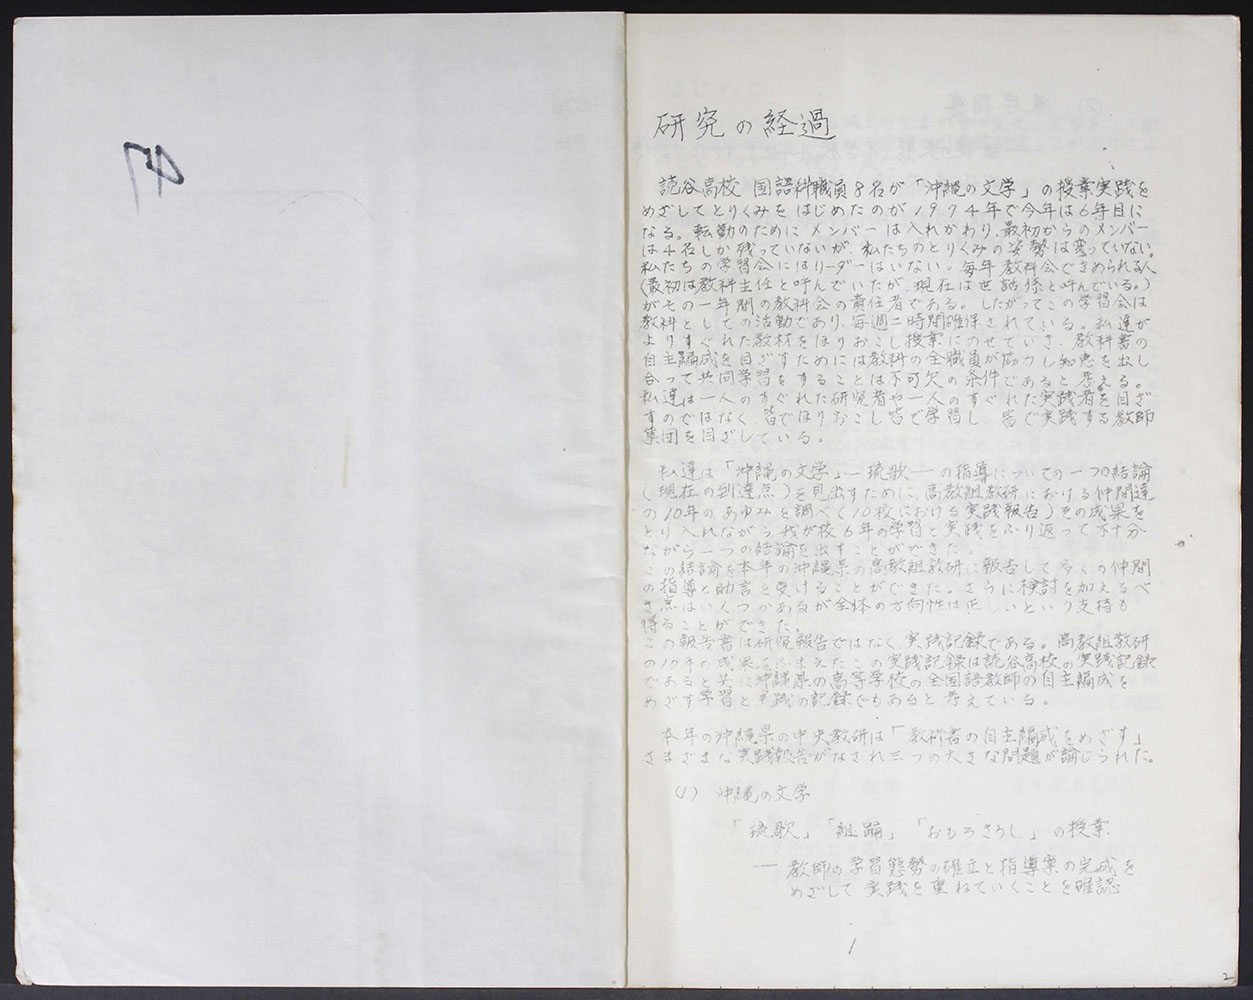 研究の経過
読谷高校 国語科職員8名が「沖縄の文学」の授業実践を
めざしてとりくみをはじめたのが1974年で今年は6年目に
なる。転勤のためにメンバーは入れかわり、最初からのメンバー
は4名しか残っていないが、私たちのとりくみの姿勢は変っていない。
私たちの学習会にはリーダーはいない。毎年教科会できめられる人
(最初は教科主任と呼んでいたが、現在は世話係と呼んでいる。)
がその一年間の教科会の責任者である。したがってこの学習会は
教科としての活動であり、毎週二時間確保されている。私達が
よりすぐれた教材をほりおこし授業にのせていき、教科書の
自主編成を目ざすためには教科の全職員が協力し知恵を出し
合って共同学習をすることは不可欠の条件であると考える。
私達は一人のすぐれた研究者や一人のすぐれた実践者を目ざ
すのではなく、皆でほりおこし皆で学習し 皆で実践する教師
集団を目ざしている。
私達は「沖縄の文学」―琉歌―の指導についての一つの結論
(現在の到達点)を見出すために、高教組教研における仲間達
の10年のあゆみを調べ(10校における実践報告)その成果を
とり入れながら我が校6年の学習と実践をふり返って不十分
ながら一つの結論を出すことができた。
この結論を本年の沖縄県の高教組教研に報告して多くの仲間
の指導と助言を受けることができた。さらに検討を加えるべ
き点はいくつかあるが全体の方向性は正しいという支持も
得ることができた。
この報告書は研究報告ではなく実践記録である。高教組教研
の10年の成果をふまえたこの実践記録は読谷高校の実践記録
であると共に沖縄県の高等学校の全国語教師の自主編成を
めざす学習と実践の記録でもあると考えている。
本年の沖縄県の中央教研は「教科書の自主編成をめざす」
さまざまな実践報告がなされ三つの大きな問題が論じられた。
(1) 沖縄の文学
「琉歌」「組踊」「おもろさうし」の授業
― 教師の学習態勢の確立と指導案の完成を
めざして実践を重ねていくことを確認
1
2